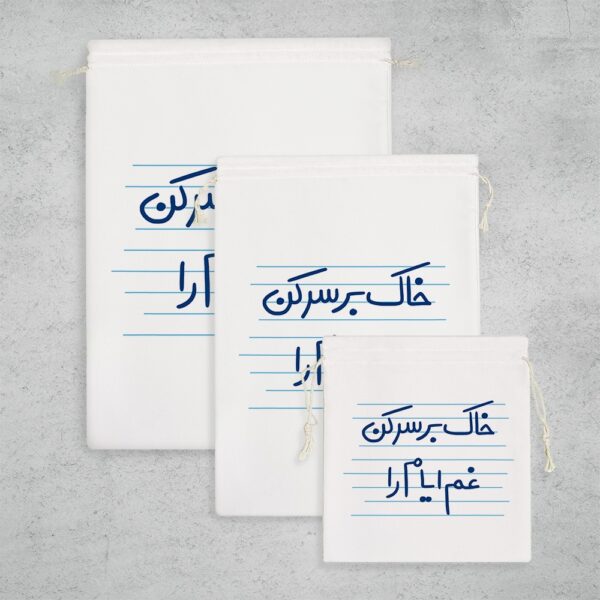 کن
را
خاک بر سر کن
را
خاک بر سر کن
غم ایام را